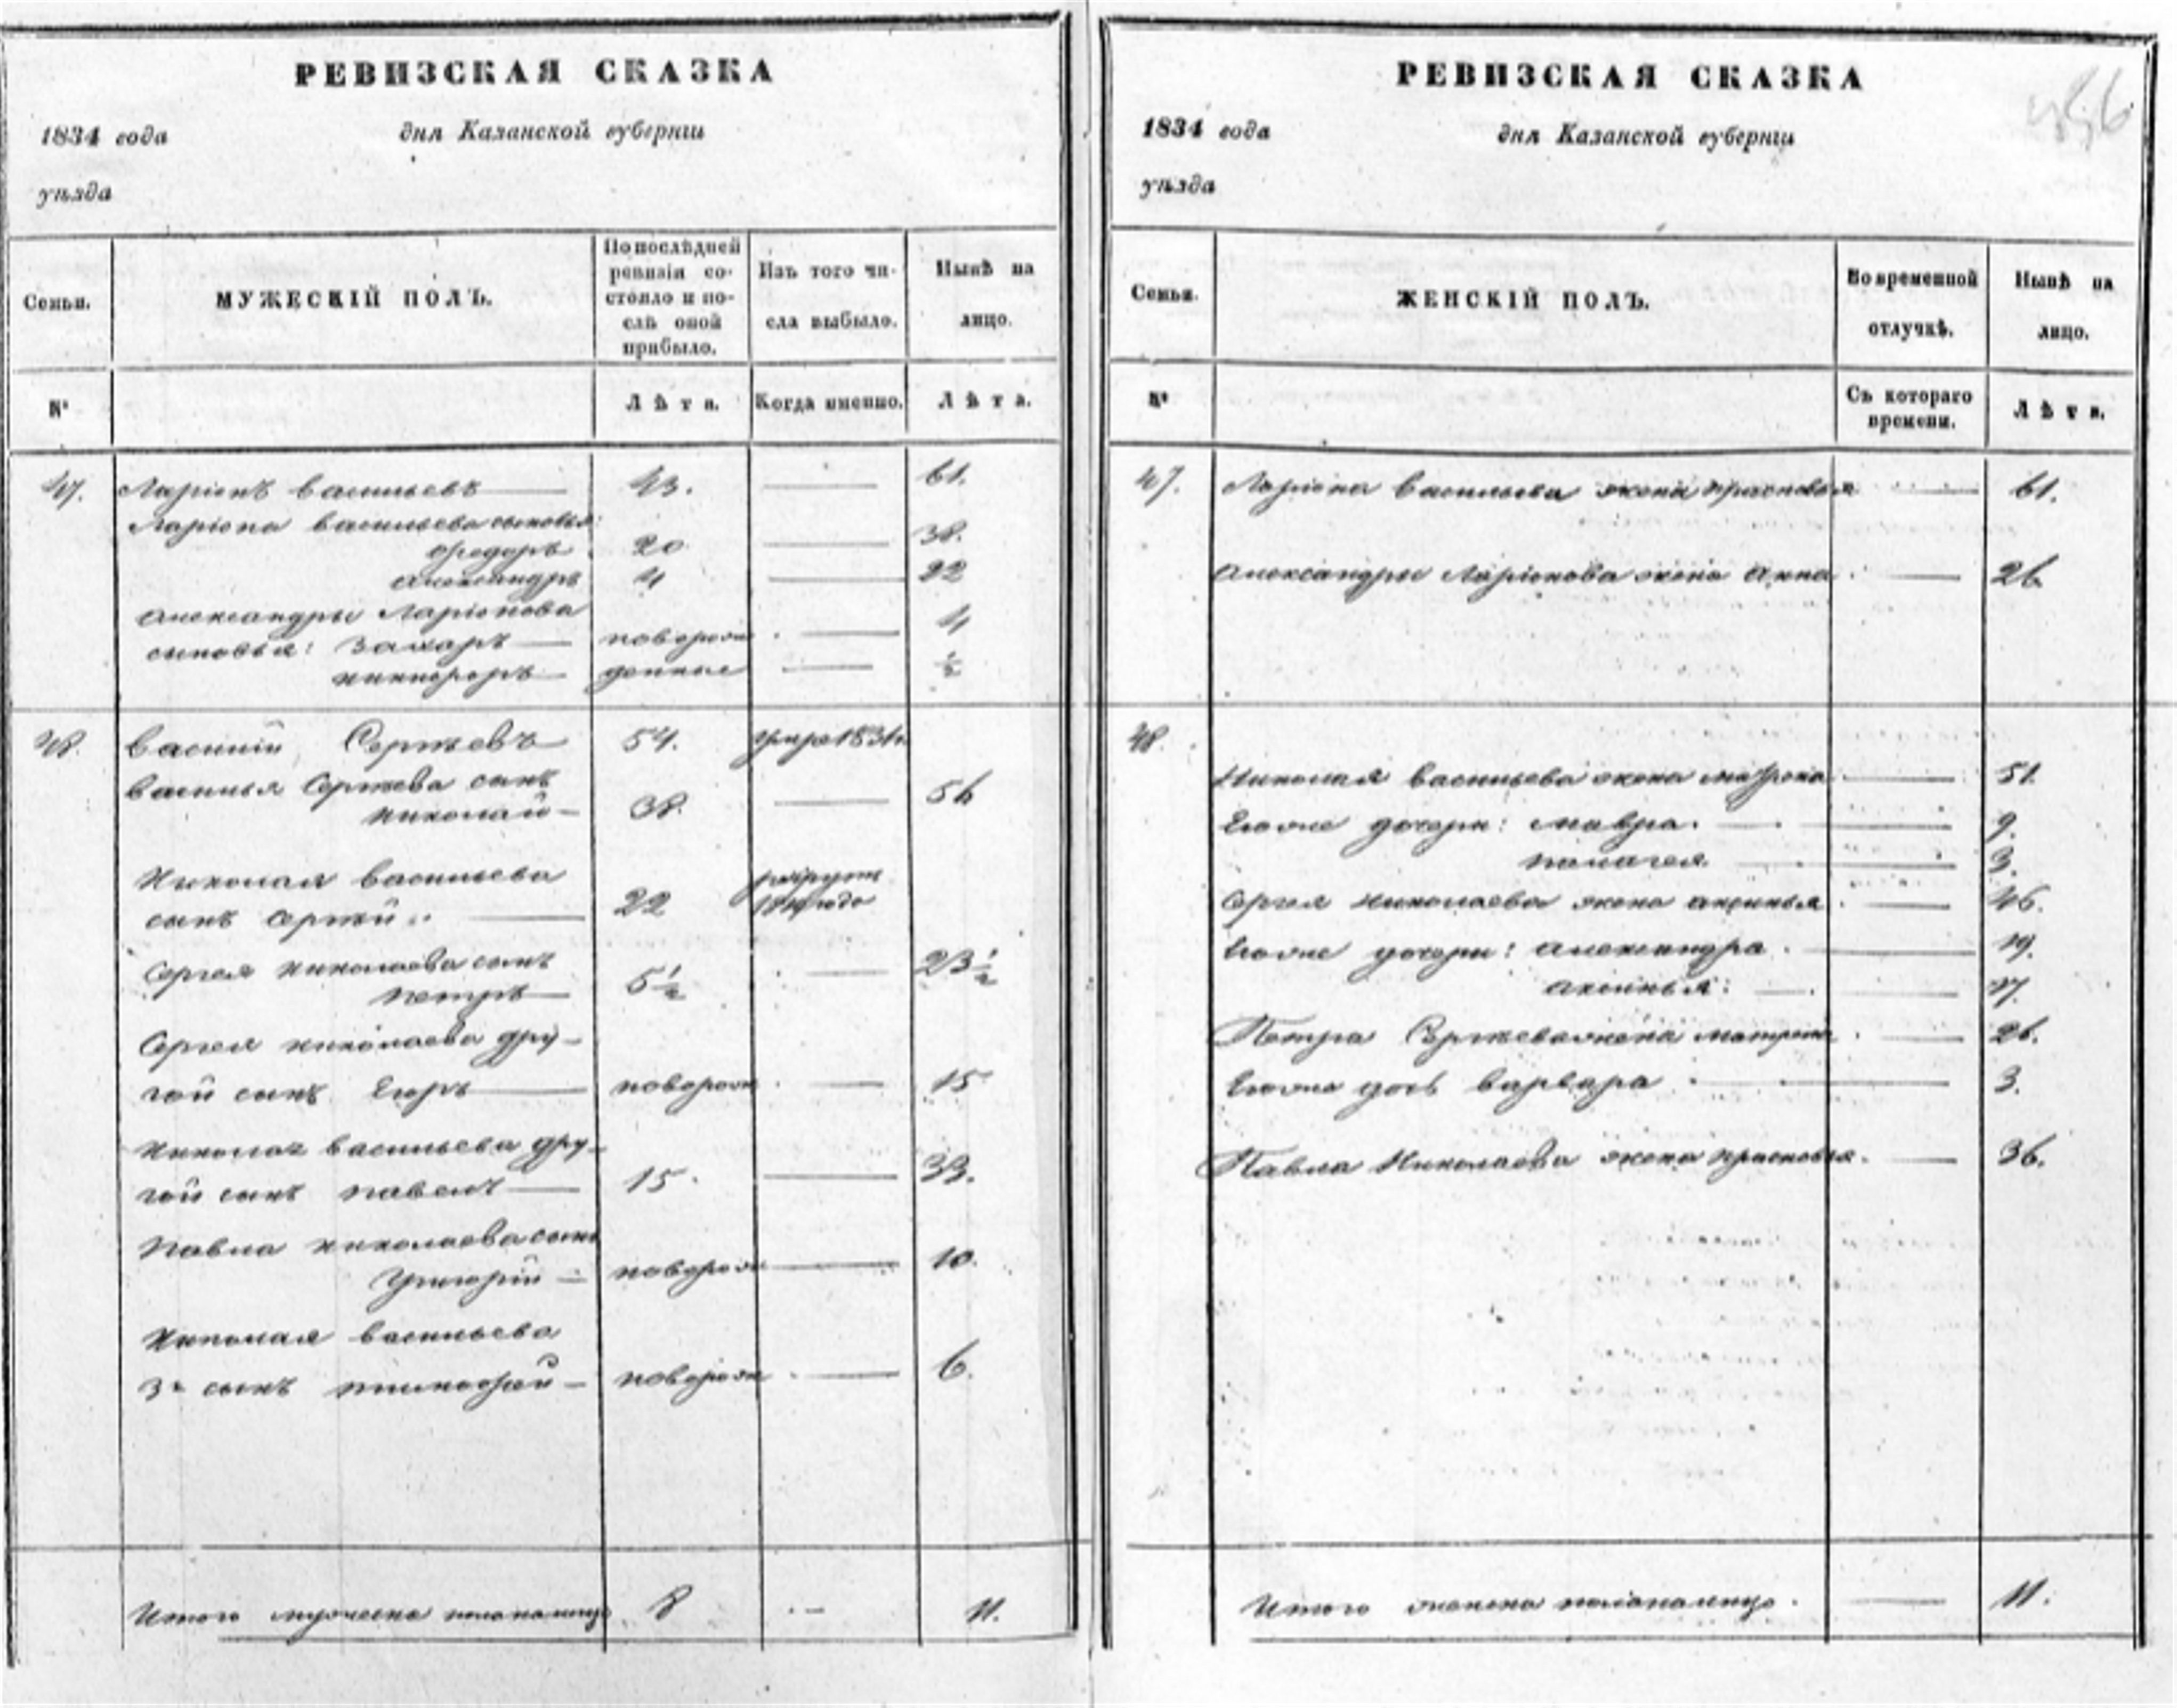 РЕВИЗСКАЯ СКАЗКА
1834 года дня Казанской губерніи
уѣзда
Семьи.
МУЖЕСКІЙ ПОЛЪ.
По послѣдней ревизіи состояло и послѣ оной прибыло.
Изъ того числа выбыло.
Нынѣ на лицо.
№
Лѣта.
Когда именно.
Лѣта.
47. Ларіонъ Васильевъ 43. 61.
Ларіона Васильева сыновья:
Федоръ 20 38.
Александръ 4 22
Александры Ларіонова
сыновья: Захаръ поворож 4
Никифоръ денные ½
48. Василій Сергѣевъ 54. 1831
Василья Сергѣева сынъ
Николай 38. 56
Николая Васильева
сынъ Сергѣй 22
Сергея Николаева сынъ
Петръ 5½ 23½
Сергея Николаева дру-
гой сынъ Егоръ поворож 15
Николая Васильева дру-
гой сынъ Павелъ 15. 33.
Павла Николаева сынъ
Григорій поворож 10.
Николая Васильева
3й сынъ Тимофей поворож 6.
Итого мужеска пола налицо 8 11.
РЕВИЗСКАЯ СКАЗКА
1834 года дня Казанской губерніи
уѣзда
Семьи.
ЖЕНСКІЙ ПОЛЪ.
Во временной отлучкѣ.
Нынѣ на лицо.
№
Съ котораго времени.
Лѣта.
47. Ларіона Васильева жена Прасковья 61.
Александры Ларіонова жена Анна 26
48.
Николая Васильева жена Матрона 51.
Егоже дочери: Мавра. 9.
Палагея 3.
Сергея Николаева жена Аксинья 46.
Егоже дочери: Александра 19.
Аксинья: 17.
Петра Сергѣева жена Матрена 26.
Егоже дочь Варвара 3.
Павла Николаева жена Прасковья 36.
Итого женска пола налицо 11.